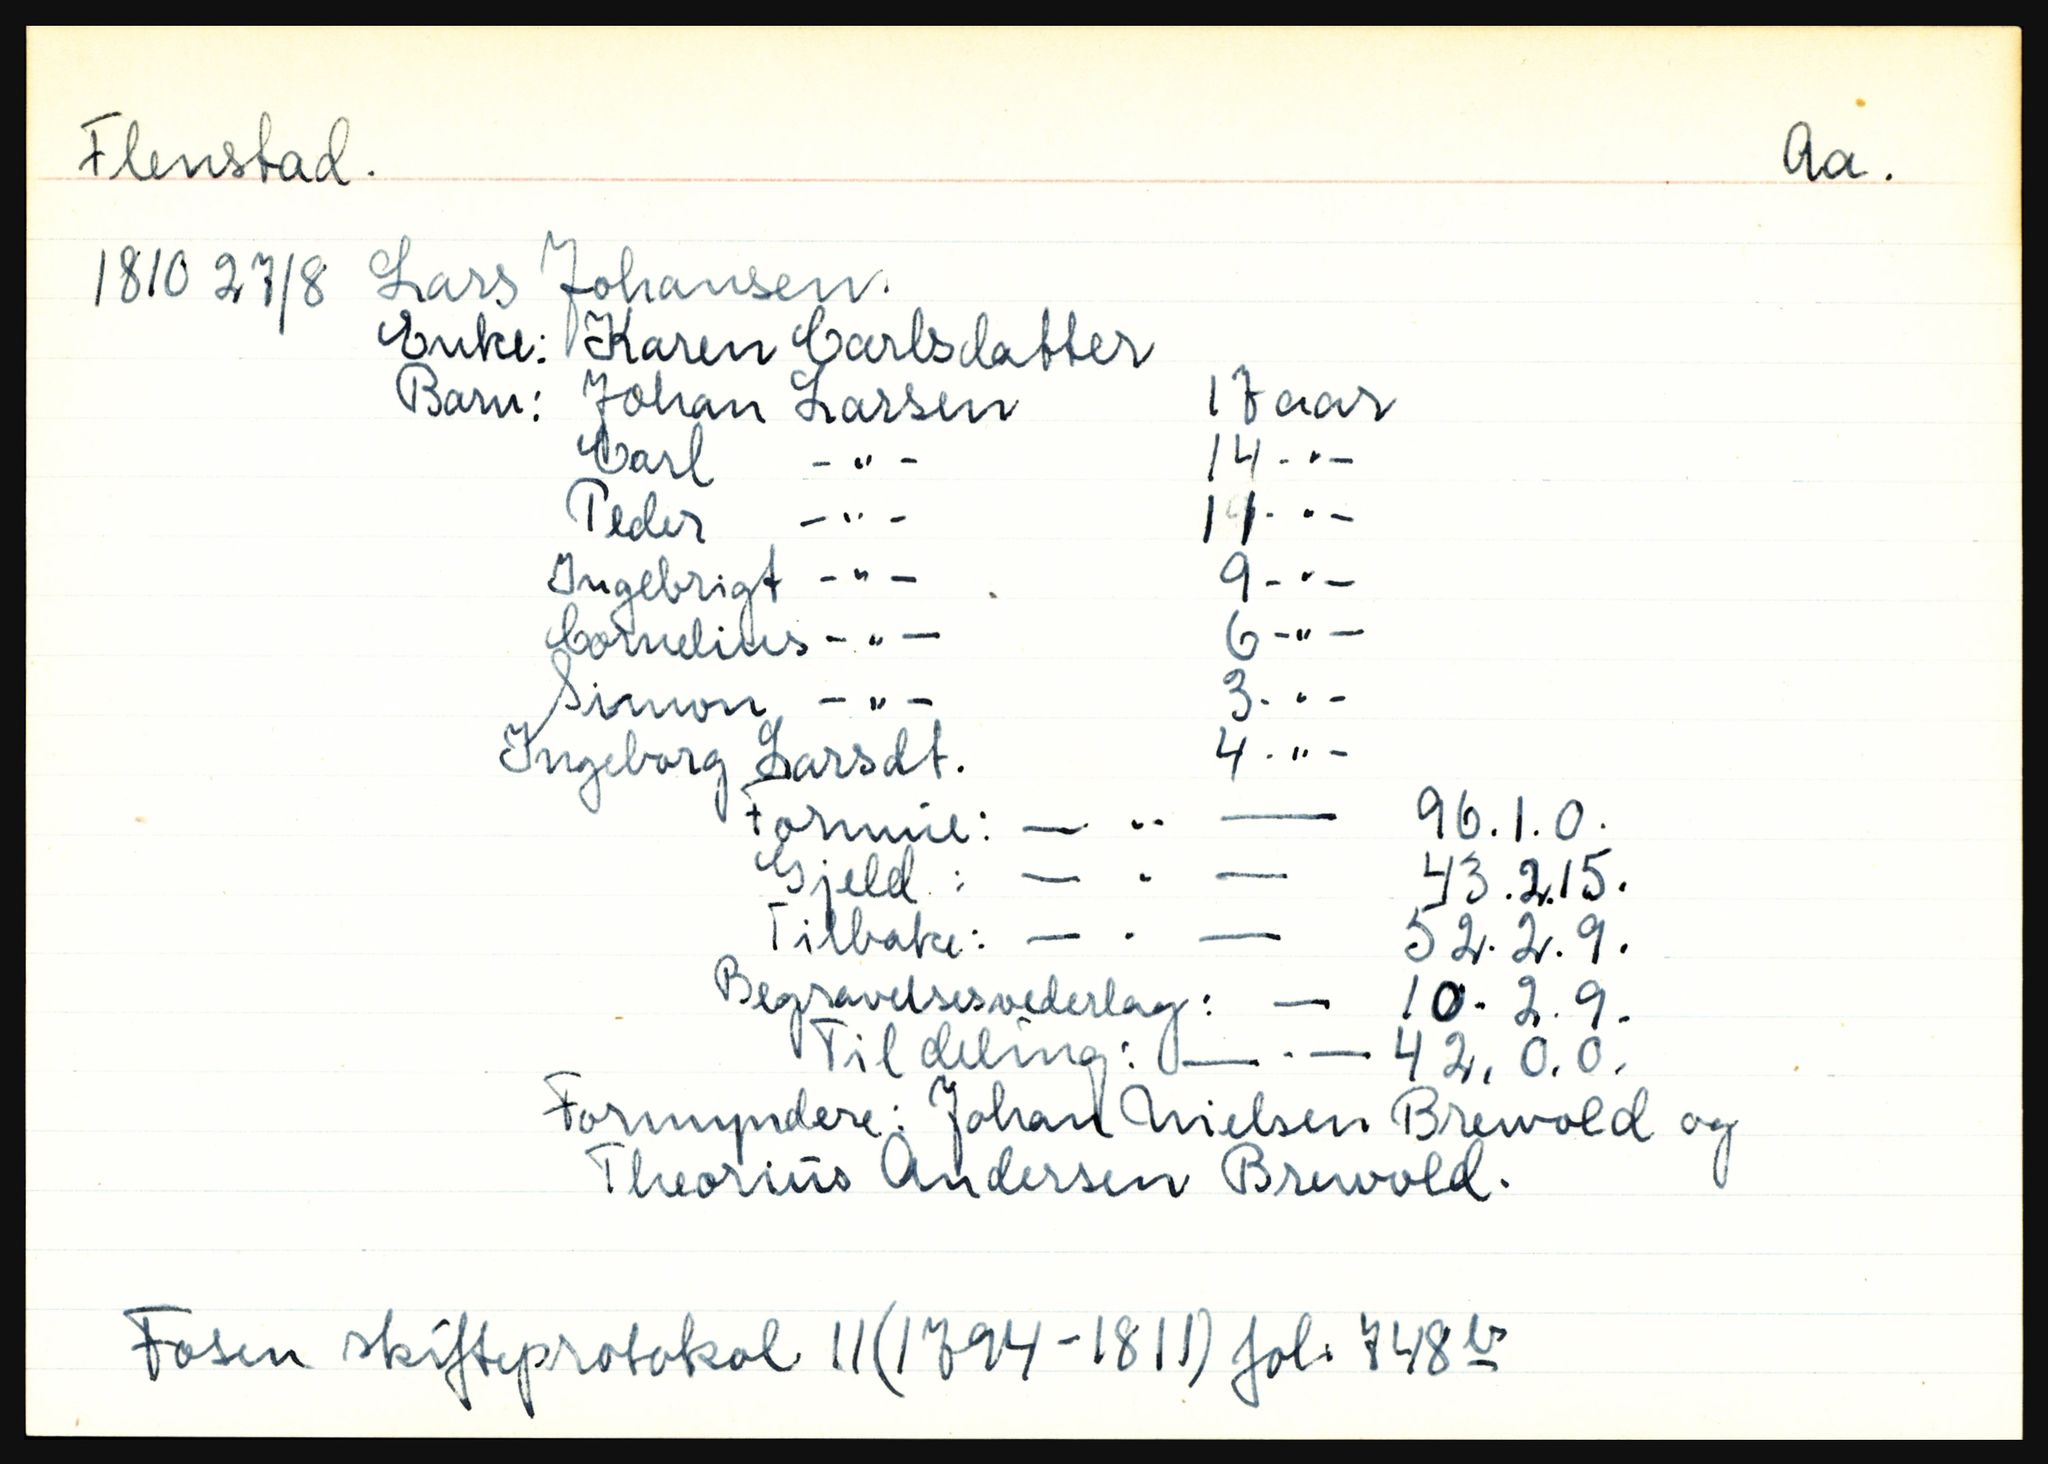 Flenstad. Aa.
1810 27/8 Lars Johansen.
Enke: Karen Carlsdatter
Barn: Johan Larsen 17 aar
Carl - " - 14 - " -
Peder - " - 11 - " -
Ingebrigt - " - 9 - " -
Cornelius - " - 6 - " -
Simon - " - 3 - " -
Ingeborg Larsdt. 4 - " -
Formue: — " — 96.1.0.
Gjeld : — " — 43.2.15.
Tilbake: — " — 52.2.9.
Begravelsesvederlag: — 10.2.9.
Til deling: — " — 42.0.0.
Formyndere: Johan Nielsen Brewold og
Theorius Andersen Brewold.
Fosen skifteprotokol 11 (1794-1811) fol. 748 b